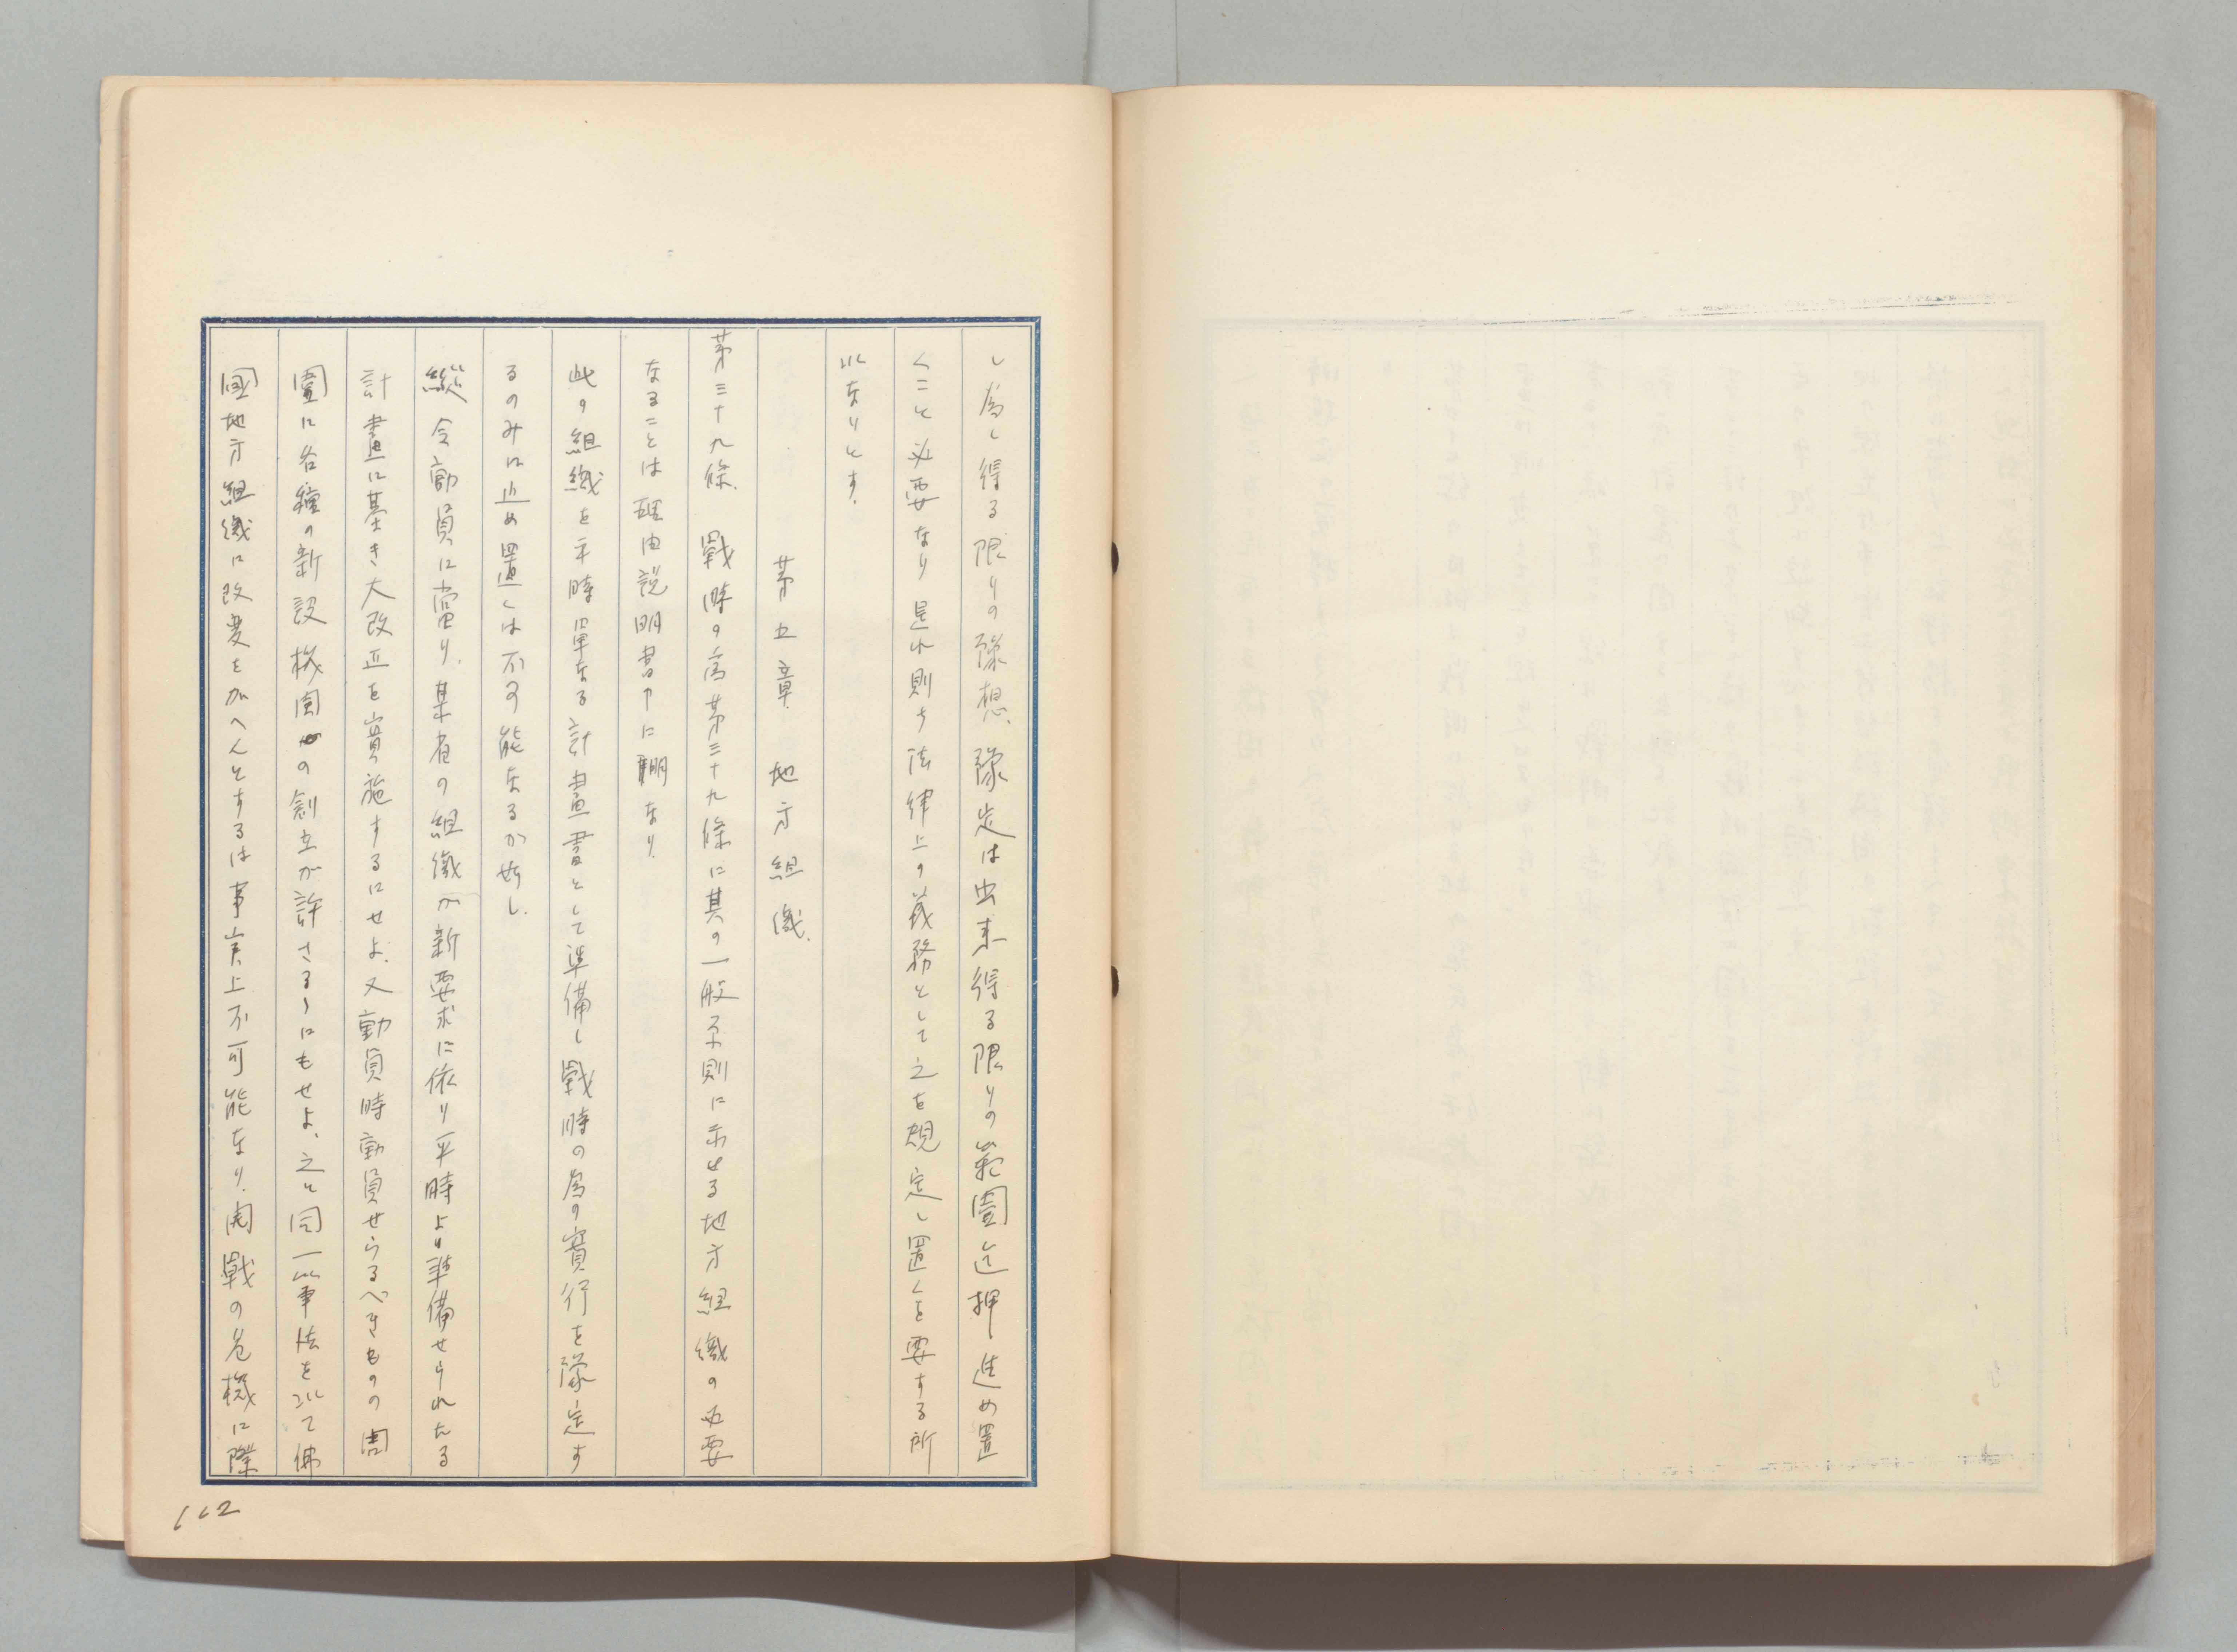 し為し得る限りの豫想、豫定は出来得る限りの範圍迄押進め置
くこと必要なり是れ則ち法律上の義務として之を規定し置くを要する所
以なりとす、
第五章　地方組織、
第三十九條、　戰時の為第三十九條に其の一般原則に示せる地方組織の必要
なることは理由説明書中に明なり、
此の組織を平時單なる計畫書として準備し戰時の為の實行を豫定す
るのみに止め置くは不可能なるが如し、
縦令動員に當り、某省の組織が新要求に依り平時より準備せられたる
計畫に基き大改正を實施するにせよ、又動員時動員せらるべきものの周
圍に各種の新設機関の創立が許さるゝにもせよ、之と同一筆法を以て佛
國地方組織に改変を加へんとするは事実上不可能なり、開戰の危機に際
112